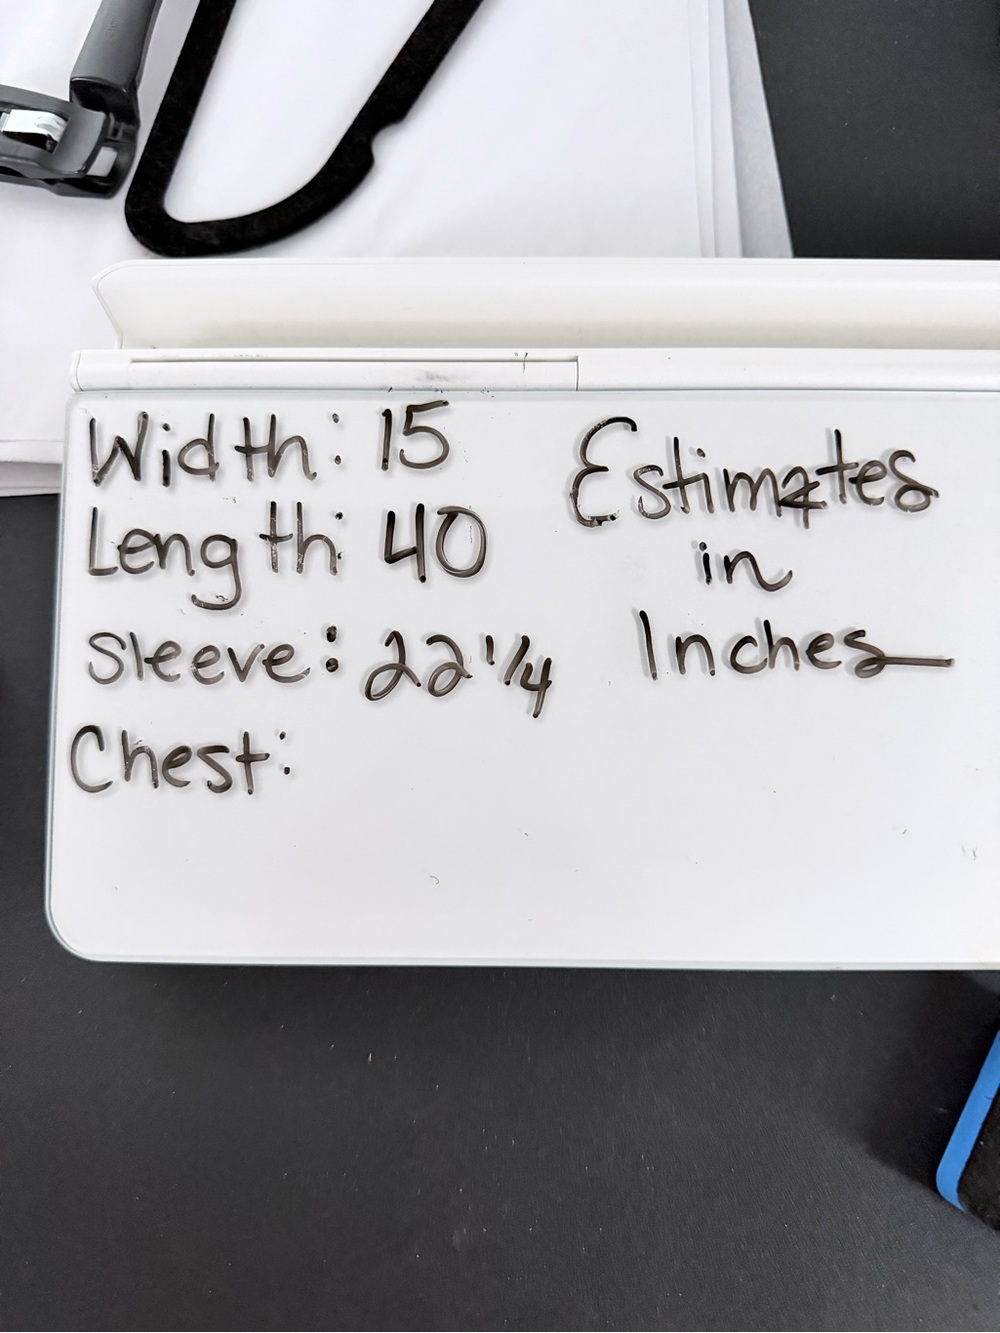 Width: 15
Length: 40
Sleeve: 22 1/4
Chest:
Estimates
in
Inches